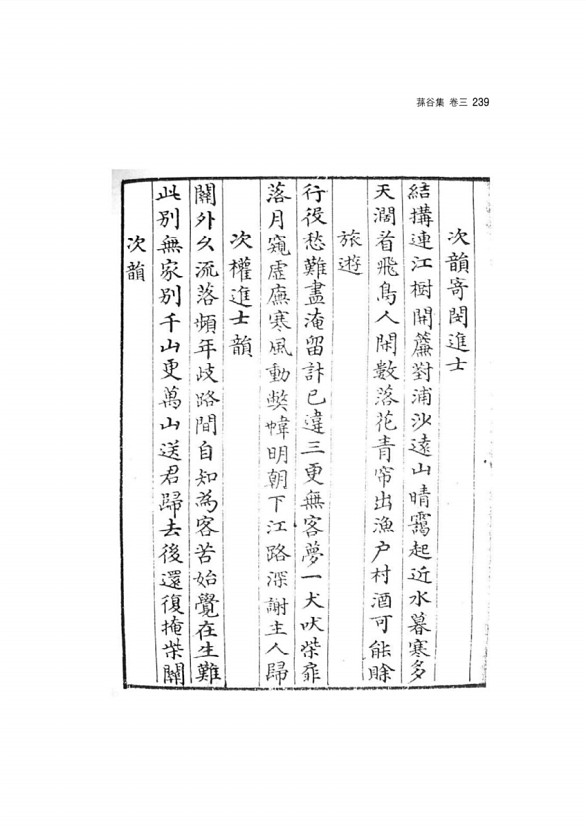 蓀谷集 卷三 239
次韻寄閔進士
結搆連江樹開簾對浦沙遠山晴靄起近水暮寒多
天濶看飛鳥人閑數落花青帘出漁户村酒可能賖
旅遊
行役愁難盡淹留計已違三更無客夢一犬吠柴扉
落月窺虛廡寒風動獘幃明朝下江路深謝主人歸
次權進士韻
關外久流落頻年歧路間自知為客苦始覺在生難
此別無家別千山更萬山送君歸去後還復掩柴關
次韻